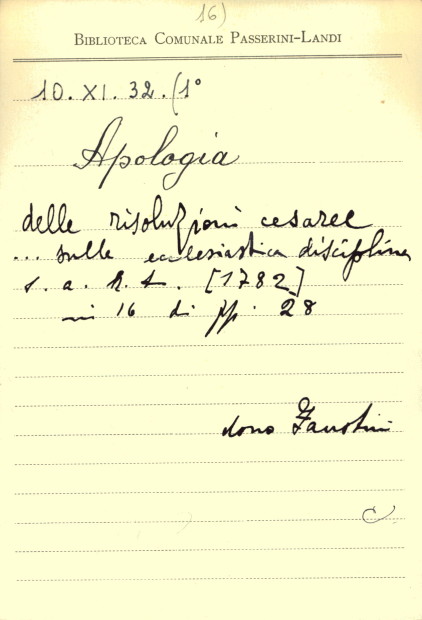 16)
BIBLIOTECA COMUNALE PASSERINI-LANDI
10. XI. 32. (1°
Apologia
delle risoluzioni cesaree
... sulle ecclesiastica disciplina
s. a. n. t. [1782]
in 16 di pp. 28
dono Faustini
C